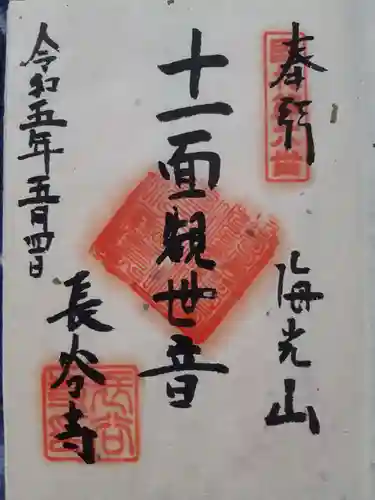 奉拝
海光山
十一面観世音
長谷寺
令和五年五月四日